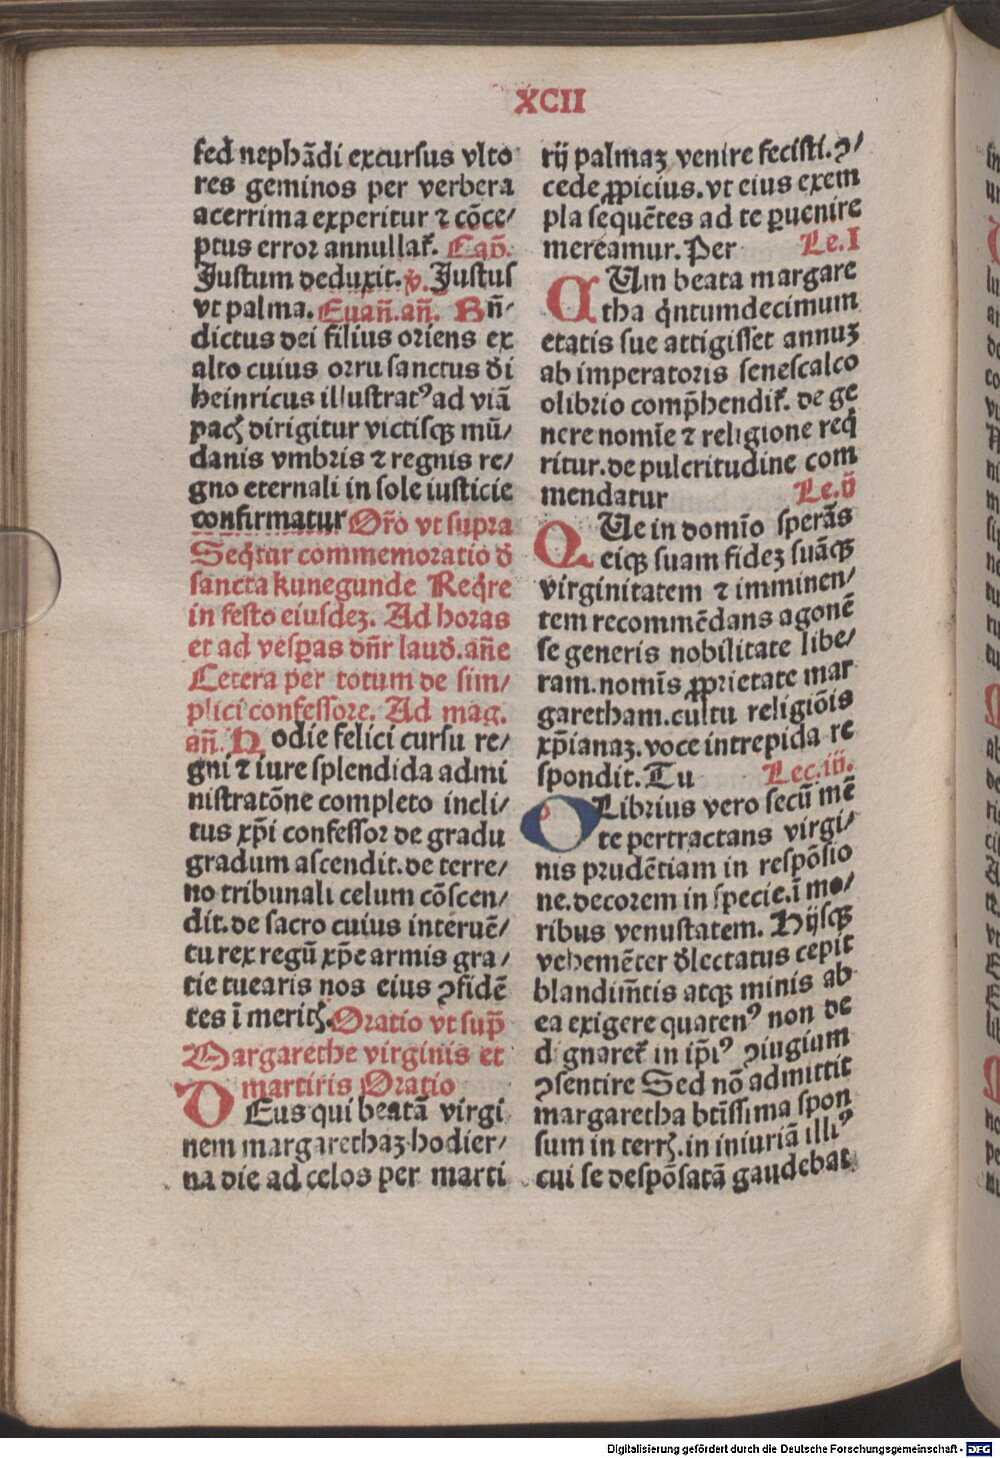 XCII
sed nephādi excursus vlto
res geminos per verbera
acerrima experitur ⁊ cōce/
ptus error annullat̄. Cap̄.
Justum deduxit. v̄. Justus
vt palma. Euan̄. an̄. Bn̄-
dictus dei filius oriens ex
alto cuius ortu sanctus di
heinricus illustratꝰ ad viā
pacꝭ dirigitur victisqꝫ mū/
danis vmbris ⁊ regnis re/
gno eternali in sole iusticie
confirmatur Or̄o vt supra
Seq̄tur commemoratio d̄
sancta kunegunde Req̄re
in festo eiusdeꝫ. Ad horas
et ad vesꝑas dn̄r laud̄. an̄e
Cetera per totum de sim/
plici confessore. Ad mag.
an̄. Hodie felici cursu re/
gni ⁊ iure splendida admi
nistratōne completo incli/
tus xp̄i confessor de gradu
gradum ascendit. de terre/
no tribunali celum cōscen/
dit. de sacro cuius interuē/
tu rex regū xp̄e armis gra/
tie tuearis nos eius ꝯfidē
tes ī meritꝭ. Oratio vt sup̄
Margarethe virginis et
martiris Oratio
DEus qui beatā virgi
nem margarethaꝫ hodier/
na die ad celos per marti
rij palmaꝫ venire fecisti. ꝯ/
cede ꝓpicius. vt eius exem
pla sequētes ad te ꝑuenire
mereamur. Per Le. I
CUm beata margare
tha q̇ntumdecimum
etatis sue attigisset annuꝫ
ab imperatoris senescalco
olibrio comp̄hendit̄. de ge
nere nomīe ⁊ religione req̇
ritur. de pulcritudine com
mendatur Le. ij
QUe in domīo sperās
eiqꝫ suam fideꝫ suāqꝫ
virginitatem ⁊ imminen/
tem recommēdans agonē
se generis nobilitate libe/
ram. nomīs ꝓprietate mar
garetham. cultu religiōis
xp̄ianaꝫ. voce intrepida re
spondit. Tu Lec. iij.
OLibrius vero secū mē
te pertractans virgi/
nis prudētiam in respōsio
ne. decorem in specie. ī mo/
ribus venustatem. Hijsqꝫ
vehemēter d̄lectatus cepit
blandim̄tis atqꝫ minis ab
ea exigere quatenꝰ non de
dignaret̄ in ip̄iꝰ ꝯiugium
ꝯsentire Sed nō admittit
margaretha btīssima spon
sum in terrꝭ. in iniuriā illiꝰ
cui se despōsatā gaudebat.
Digitalisierung gefördert durch die Deutsche Forschungsgemeinschaft - DFG